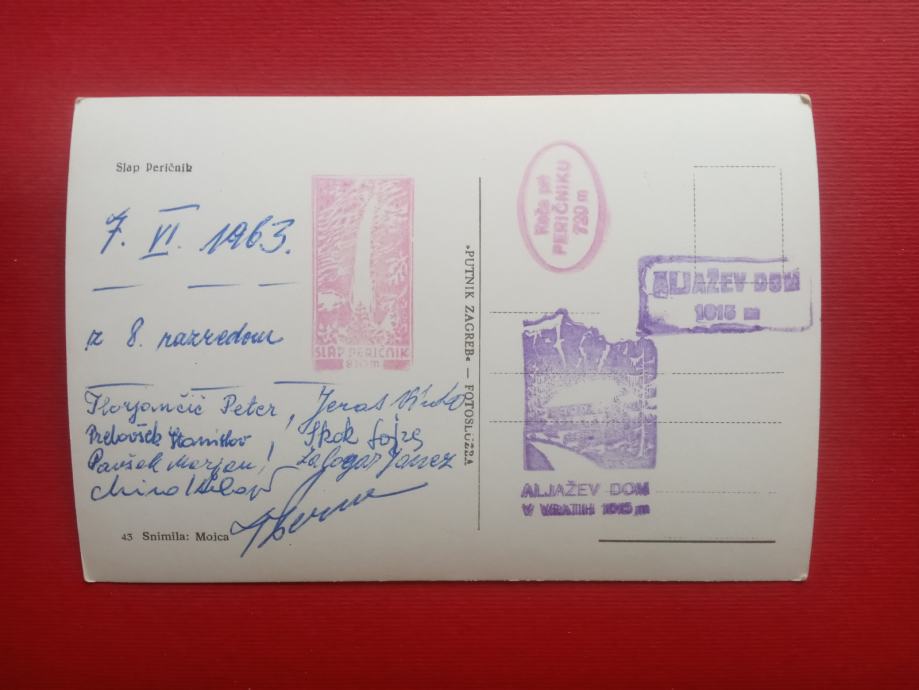 Slap Peričnik
7. VI. 1963.
z 8. razredom
Florjančič Peter, Jeras
Prelovšek Stanislav Skok Lojze
Pavšek Marjan, Zalogar Janez
43 Snimila: Mojca
SLAP PERIČNIK
»PUTNIK ZAGREB« — FOTOSLUŽBA
Koča pri
PERIČNIKU
720 m
ALJAŽEV DOM
1015 m
ALJAŽEV DOM
V VRATIH 1015 m